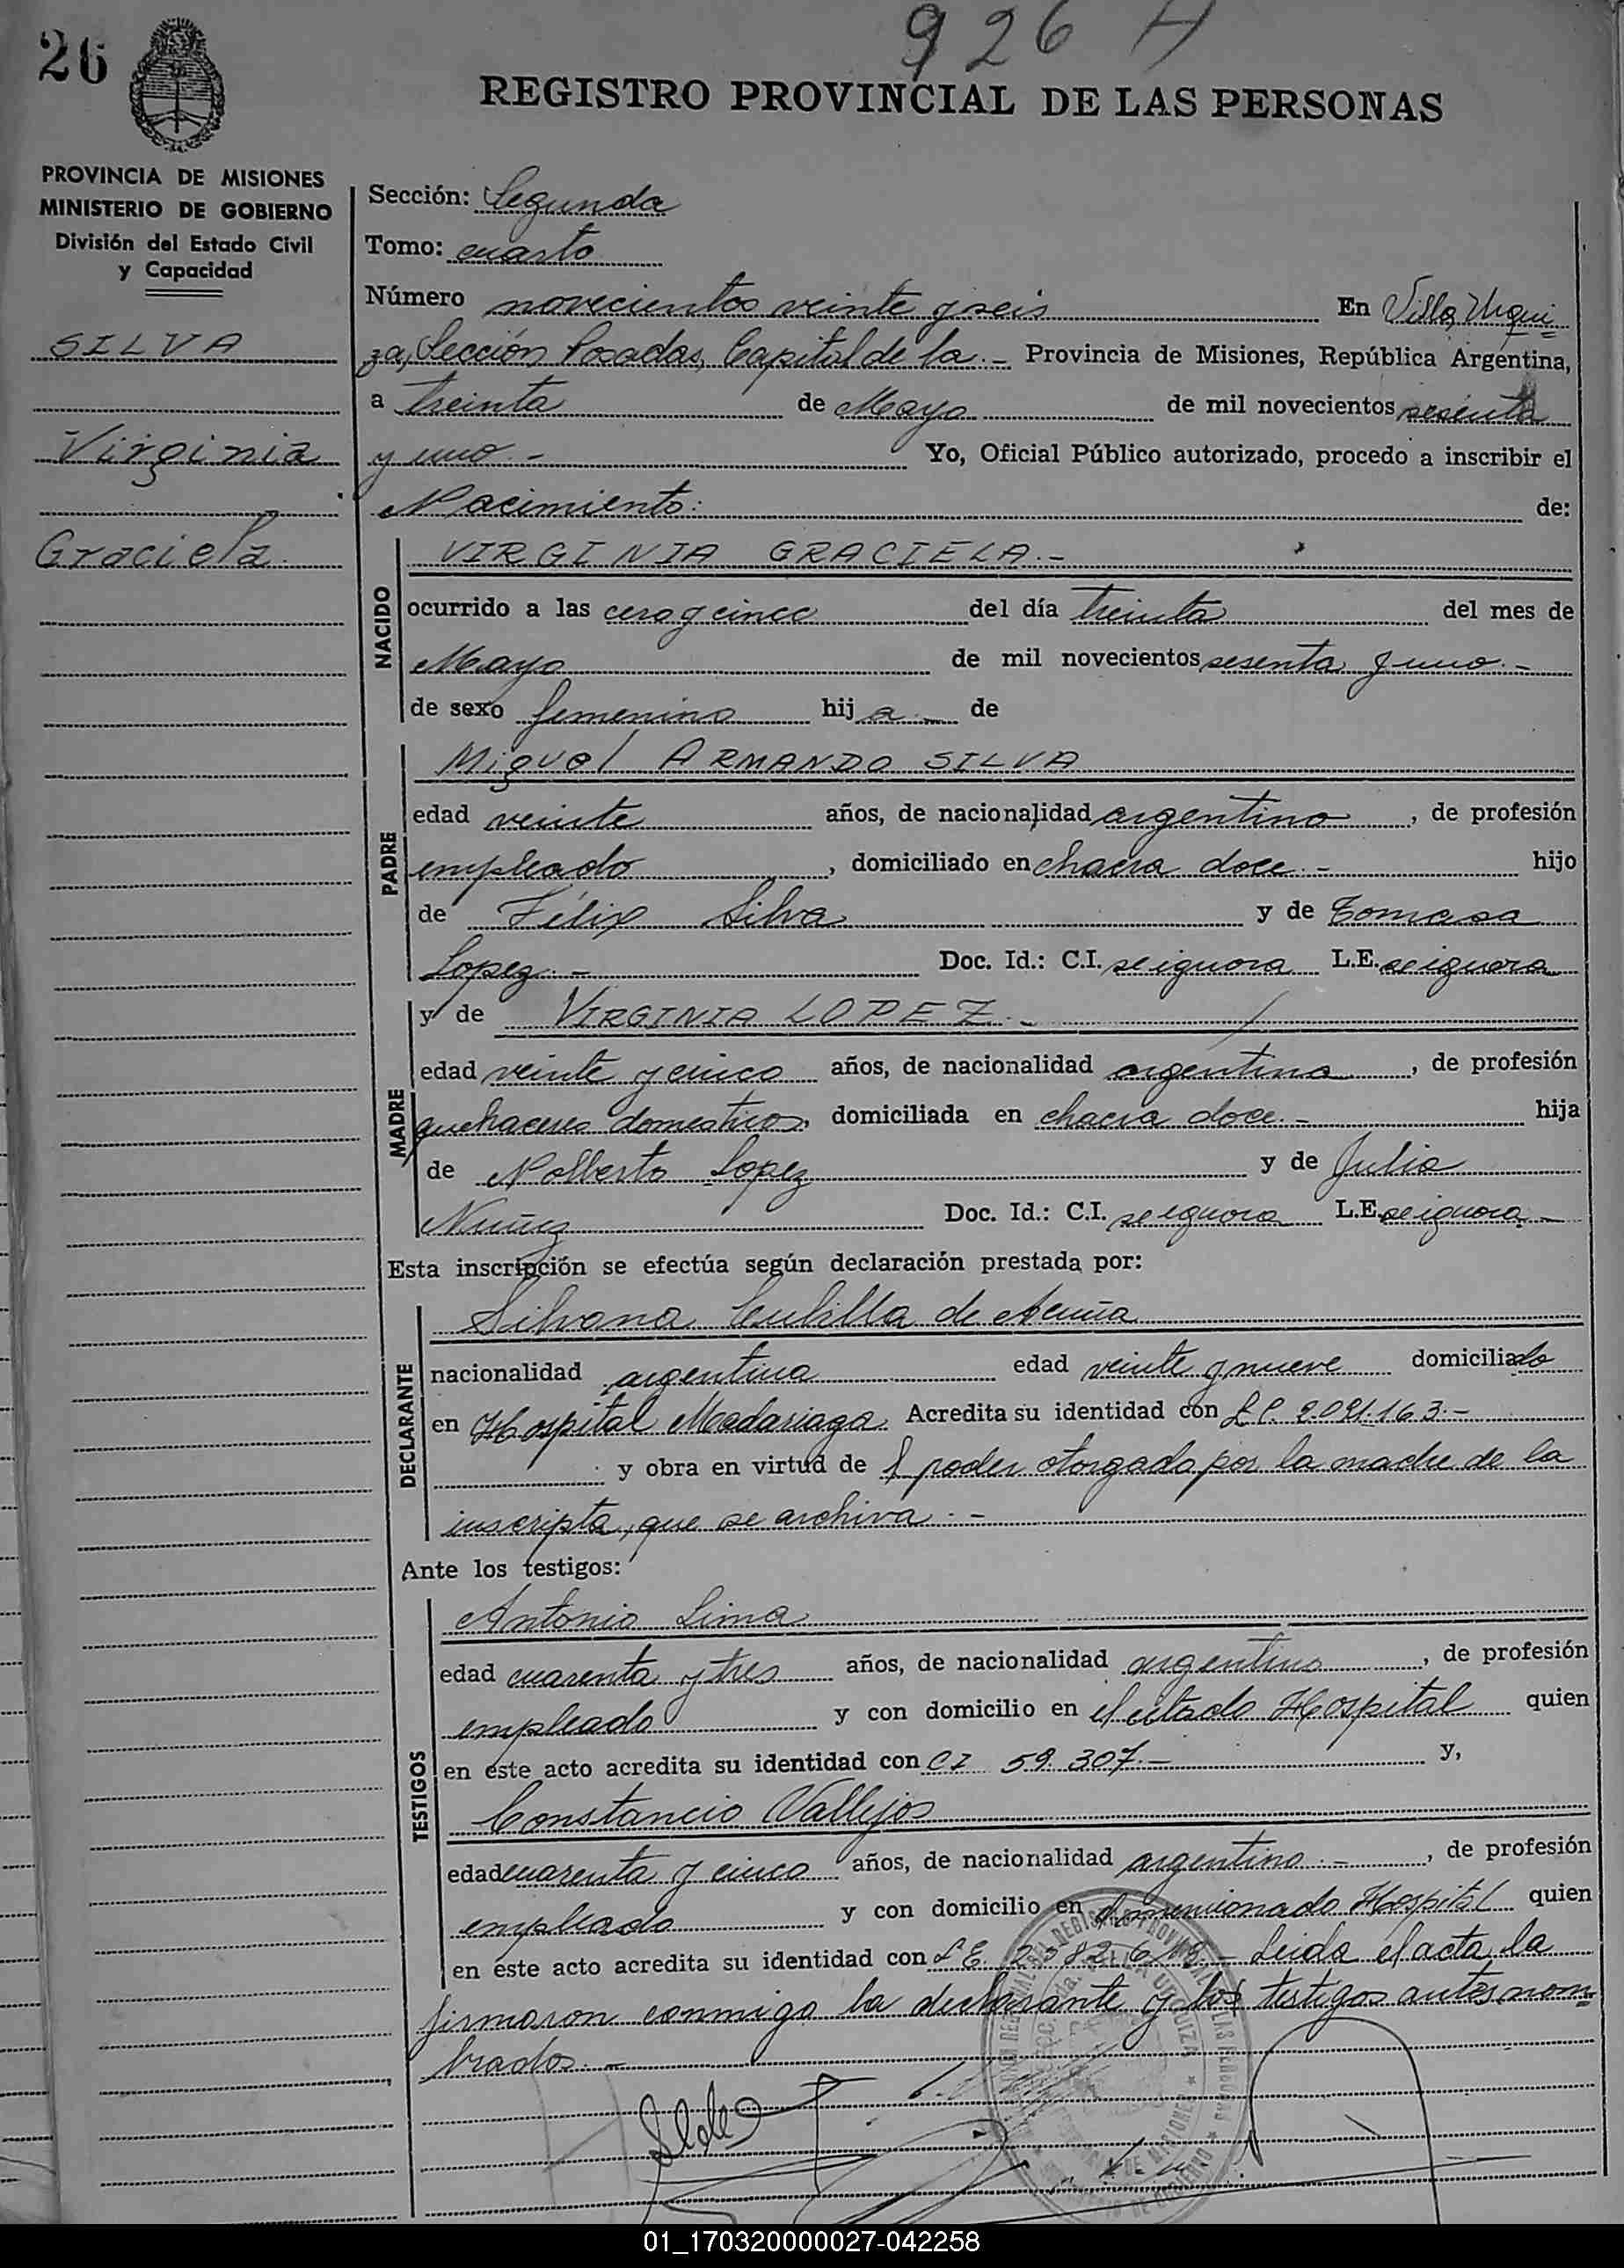 926 H
26
REGISTRO PROVINCIAL DE LAS PERSONAS
PROVINCIA DE MISIONES
MINISTERIO DE GOBIERNO
División del Estado Civil
y Capacidad
SILVA
Virginia
Graciela
Sección: Segunda
Tomo: cuarto
Número novecientos veinte y seis En Villa Urqui
za, Sección Posadas, Capital de la.- Provincia de Misiones, República Argentina,
a treinta de Mayo de mil novecientos sesenta
y uno.- Yo, Oficial Público autorizado, procedo a inscribir el
Nacimiento: de:
NACIDO
VIRGINIA GRACIELA.-
ocurrido a las cero y cinco del día treinta del mes de
Mayo de mil novecientos sesenta y uno.-
de sexo femenino hija de
PADRE
Miguel ARMANDO SILVA
edad veinte años, de nacionalidad argentino, de profesión
empleado, domiciliado en chacra doce.- hijo
de Félix Silva y de Tomasa
Lopez.- Doc. Id.: C.I. se ignora L.E. se ignora
MADRE
y de VIRGINIA LOPEZ.-
edad veinte y cinco años, de nacionalidad argentina, de profesión
quehaceres domesticos, domiciliada en chacra doce.- hija
de Nolberto Lopez y de Julia
Nuñez Doc. Id.: C.I. se ignora L.E. se ignora.-
Esta inscripción se efectúa según declaración prestada por:
DECLARANTE
Silvana de Acuña
nacionalidad argentina edad veinte y nueve domiciliada
en Hospital Madariaga. Acredita su identidad con 2.091.163.-
y obra en virtud de poder otorgado por la madre de la
inscripta, que se archiva.-
Ante los testigos:
TESTIGOS
Antonio Lima
edad cuarenta y tres años, de nacionalidad argentino, de profesión
empleado y con domicilio en el citado Hospital quien
en este acto acredita su identidad con CI 59.307.- y,
Constancio Vallejos
edad cuarenta y cinco años, de nacionalidad argentino.-, de profesión
empleado y con domicilio en el mencionado Hospital quien
en este acto acredita su identidad con L E. Leida el acta, la
firmaron conmigo la declarante y los testigos antes nom
brados.-
01_170320000027-042258